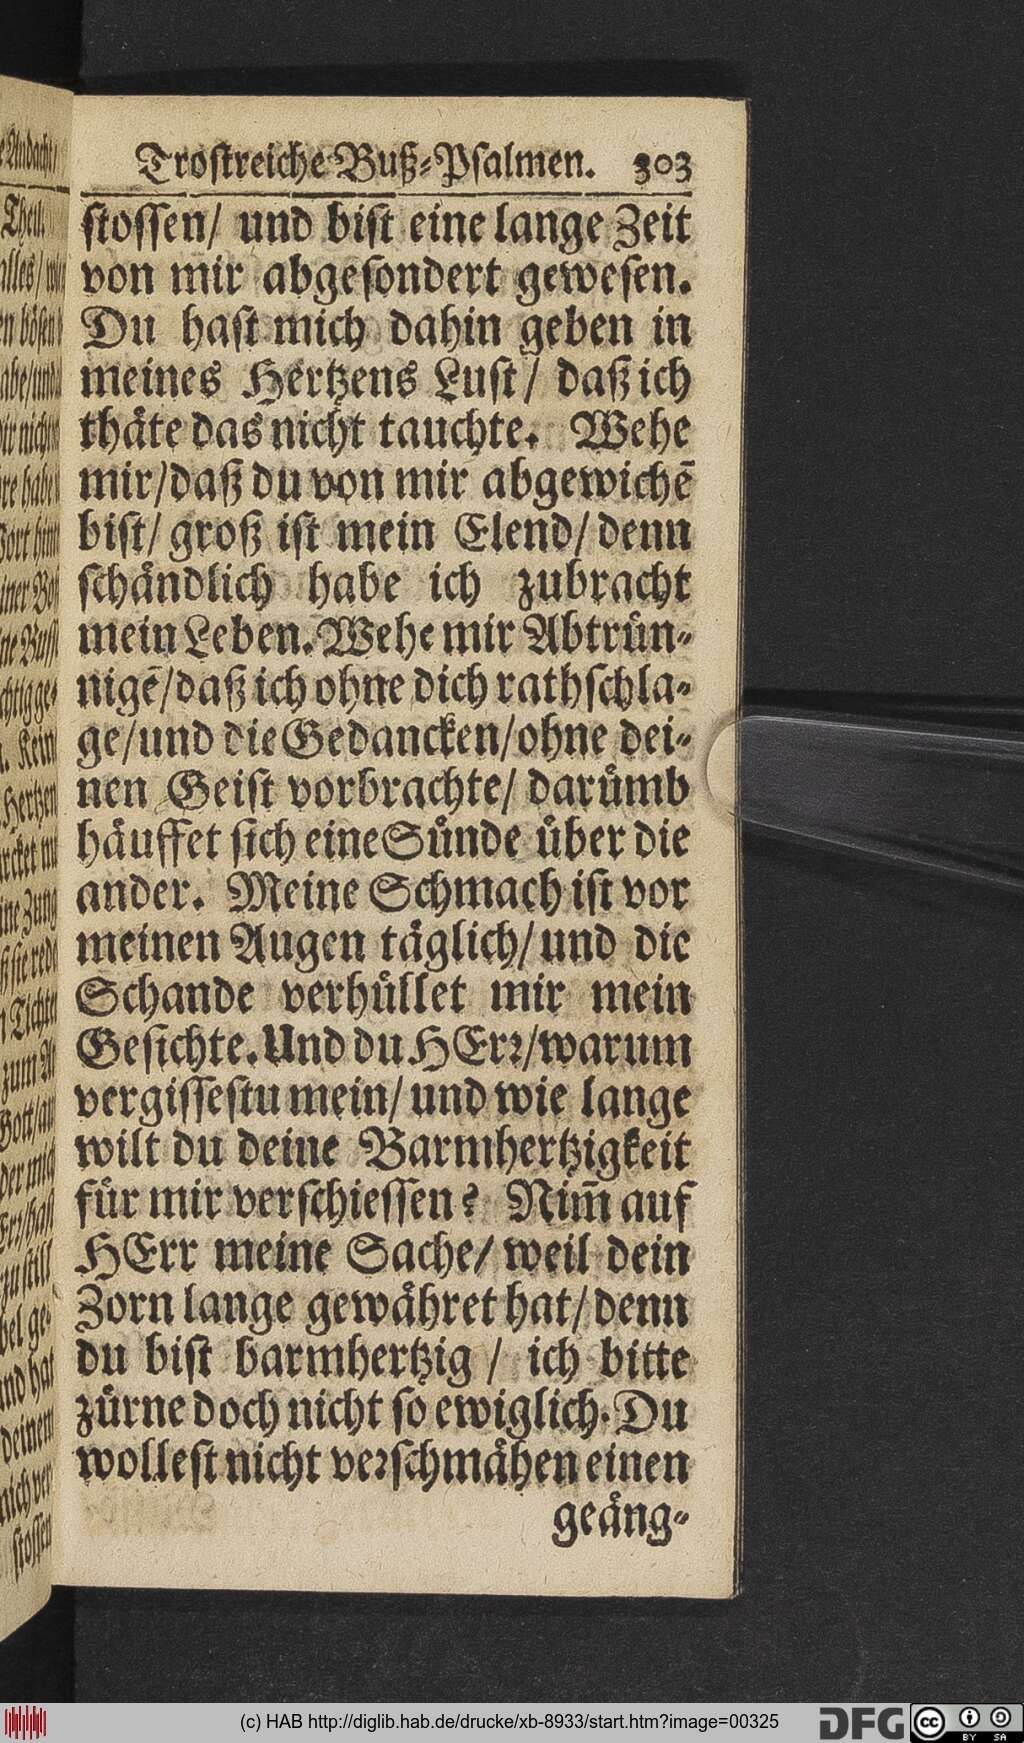 Trostreiche Buß-Psalmen. 303
stossen/ und bist eine lange Zeit
von mir abgesondert gewesen.
Du hast mich dahin geben in
meines Hertzens Lust/ daß ich
thäte das nicht tauchte. Wehe
mir/daß du von mir abgewichē
bist/ groß ist mein Elend/ denn
schändlich habe ich zubracht
mein Leben. Wehe mir Abtrün-
nigē/daß ich ohne dich rathschla-
ge/und die Gedancken/ohne dei-
nen Geist vorbrachte/ darümb
häuffet sich eine Sünde über die
ander. Meine Schmach ist vor
meinen Augen täglich/und die
Schande verhüllet mir mein
Gesichte. Und du HErr/warum
vergissestu mein/ und wie lange
wilt du deine Barmhertzigkeit
für mir verschiessen? Nim̄ auf
HErr meine Sache/ weil dein
Zorn lange gewähret hat/denn
du bist barmhertzig / ich bitte
zürne doch nicht so ewiglich. Du
wollest nicht verschmähen einen
geäng-
(c) HAB http://diglib.hab.de/drucke/xb-8933/start.htm?image=00325
DFG
cc
BY SA